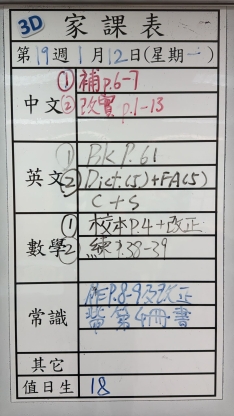 3D 家課表
第19週1月12日(星期一)
中文 ①補p.6-7
②改實p.1-13
英文 ①Bk P.61
②Dict.(5)+FA(5)
C+S
數學 ①校本P.4+改正
②練P.38-39
常識 作P.8-9及改正
帶第4冊書
其它
值日生 18